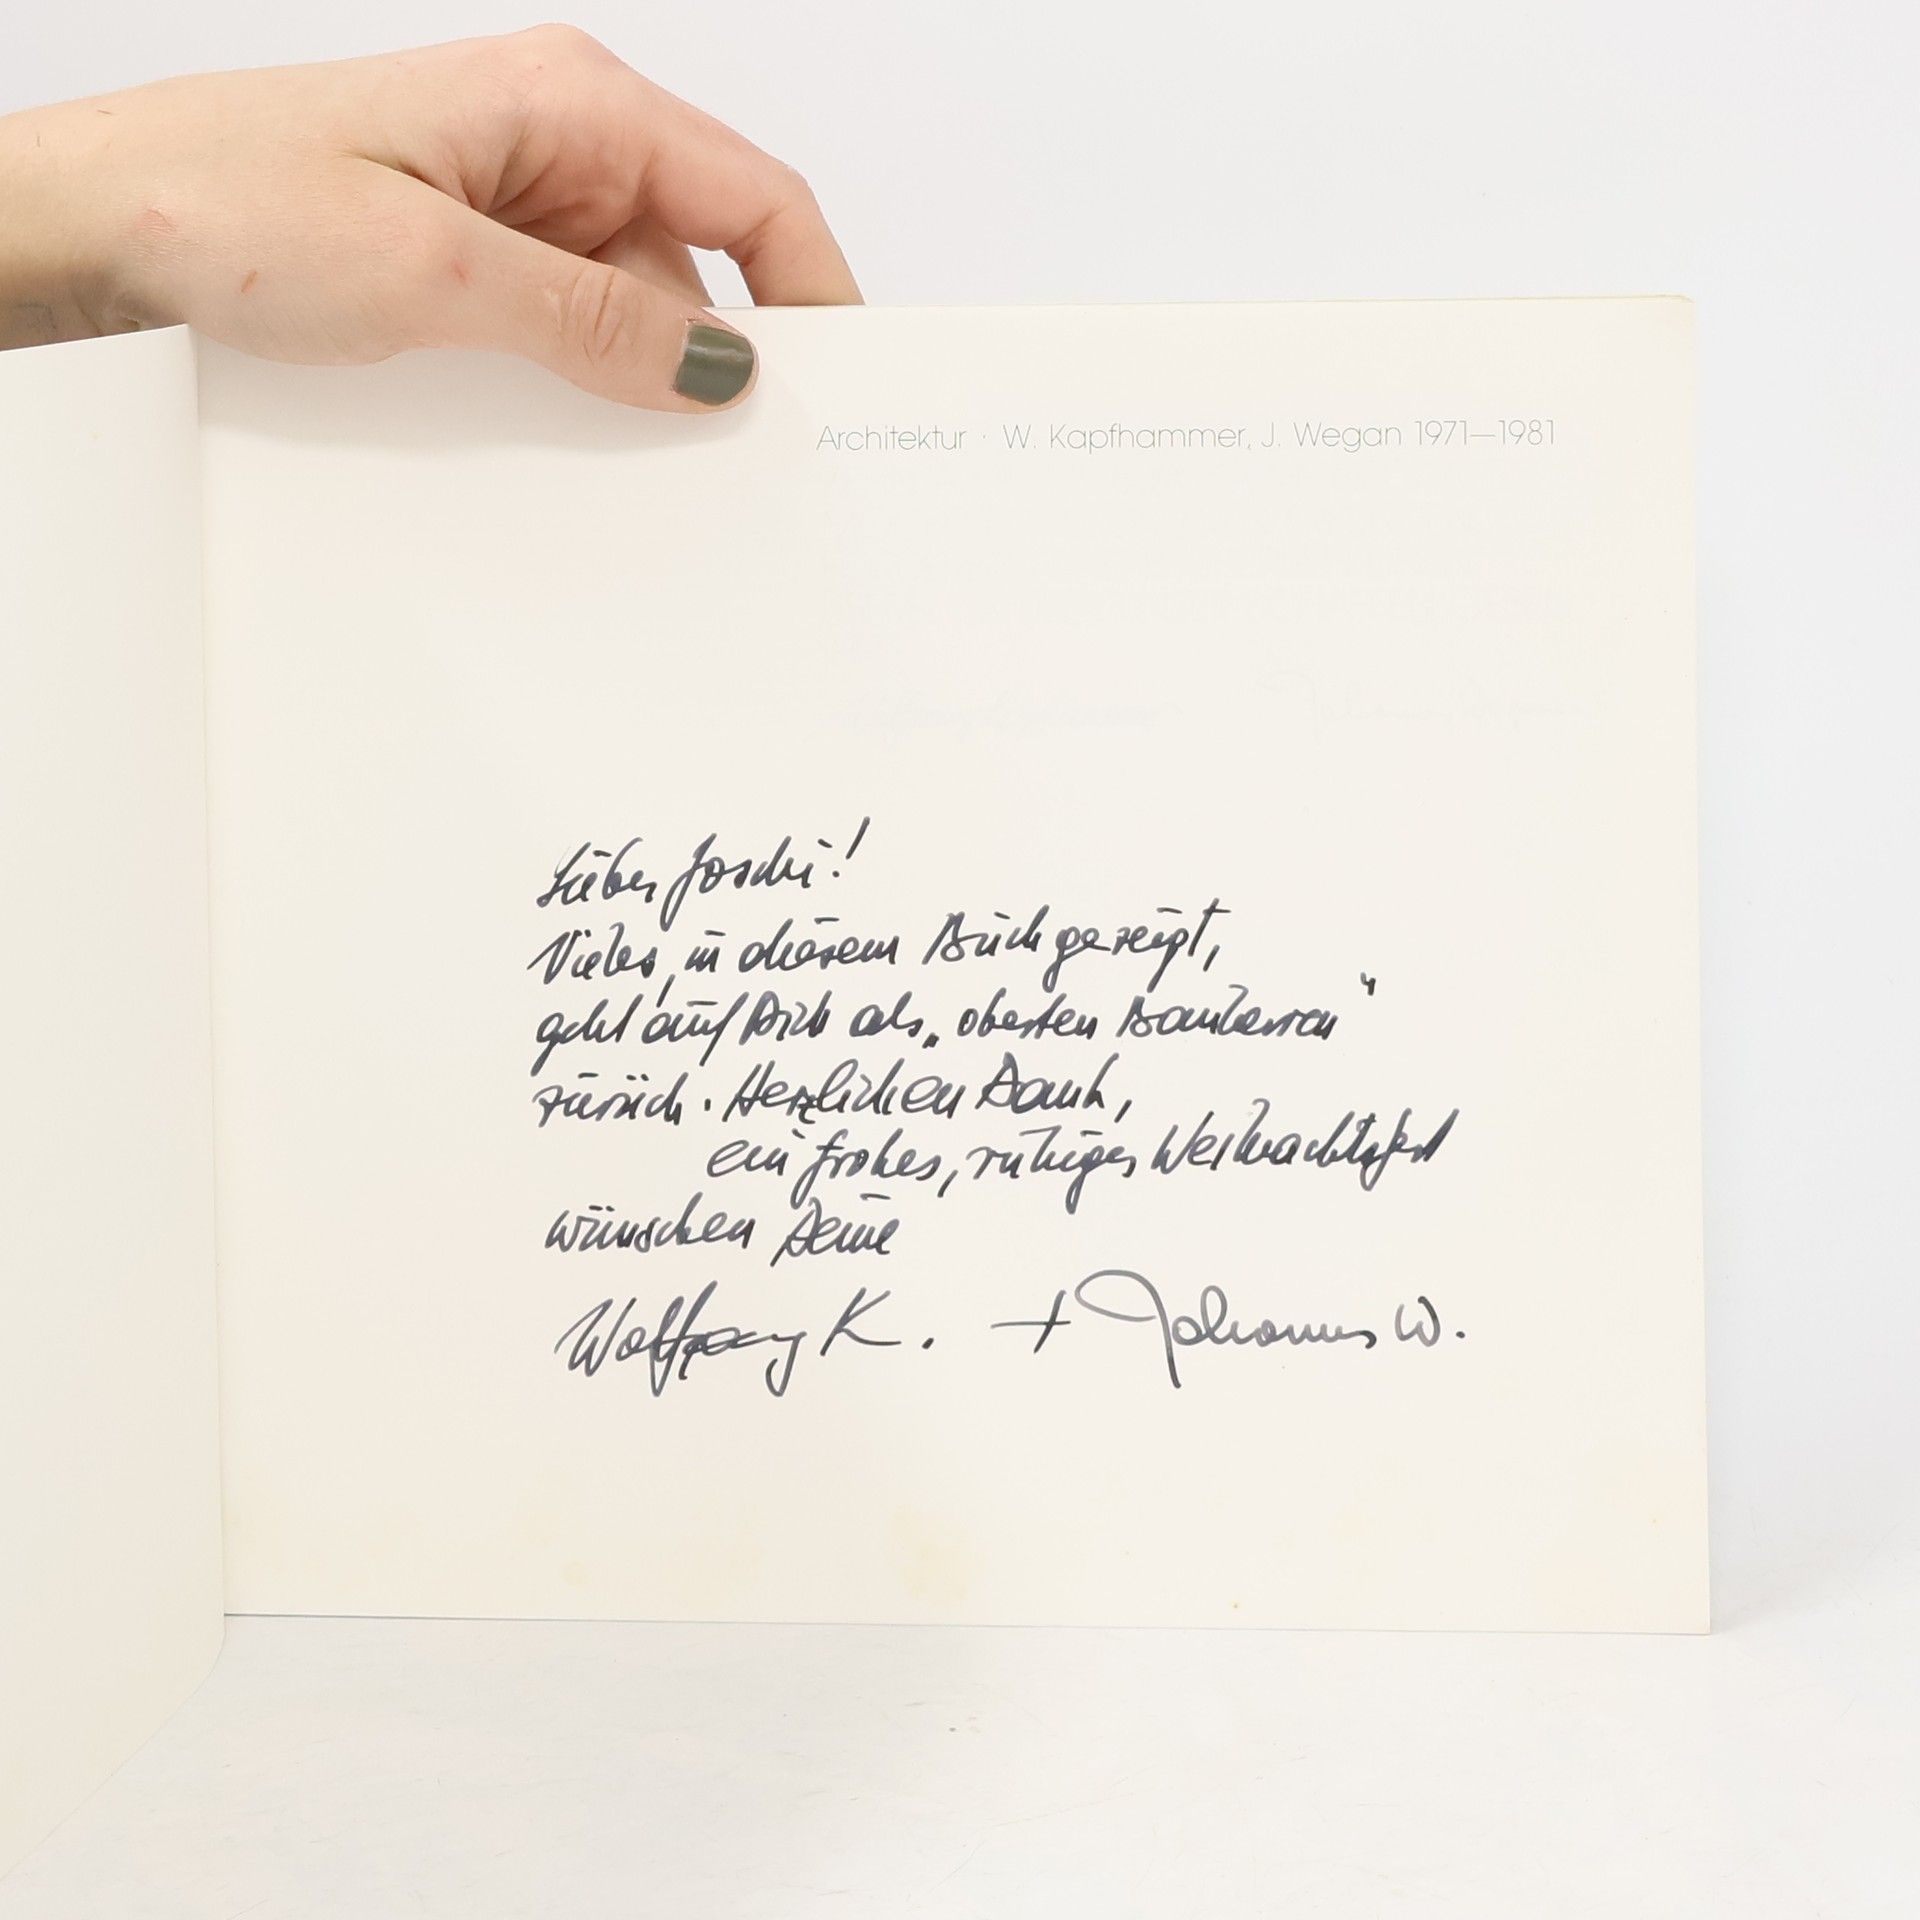 Architektur · W. Kapfhammer, J. Wegan 1971—1981
Lieber Joschi!
Vieles, in diesem Buch gezeigt,
geht auf Dich als „obersten Bauherrn“
zurück. Herzlichen Dank,
ein frohes, ruhiges Weihnachtsfest
wünschen Deine
Wolfgang K. + Johannes W.